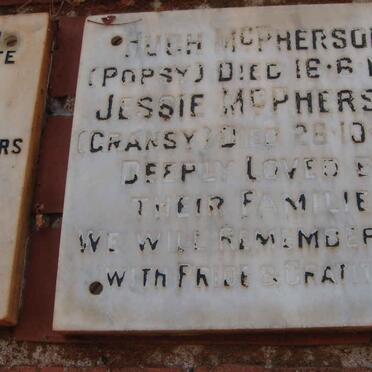 TE
RS
HUGH McPHERSO
(POPSY) DIED 18·8·1
JESSIE McPHERS
(GRANSY) DIED 28·10
DEEPLY LOVED B
THEIR FAMILIE
WE WILL REMEMBER
WITH PRIDE & GRATI